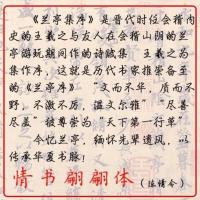 《兰亭集序》是晋代时任会稽内
史的王羲之与友人在会稽山阴的兰
亭游玩期间作的诗歌集 王羲之为
集作序，这就是历代书家推崇备至
的《兰亭集序》。“文而不华，质而不
野，不激不厉，温文尔雅”“尽善
尽美”被尊崇为“天下第一行草”
今忆兰亭，缅怀先辈遗风，以
传承华夏书脉，
情书翩翩体